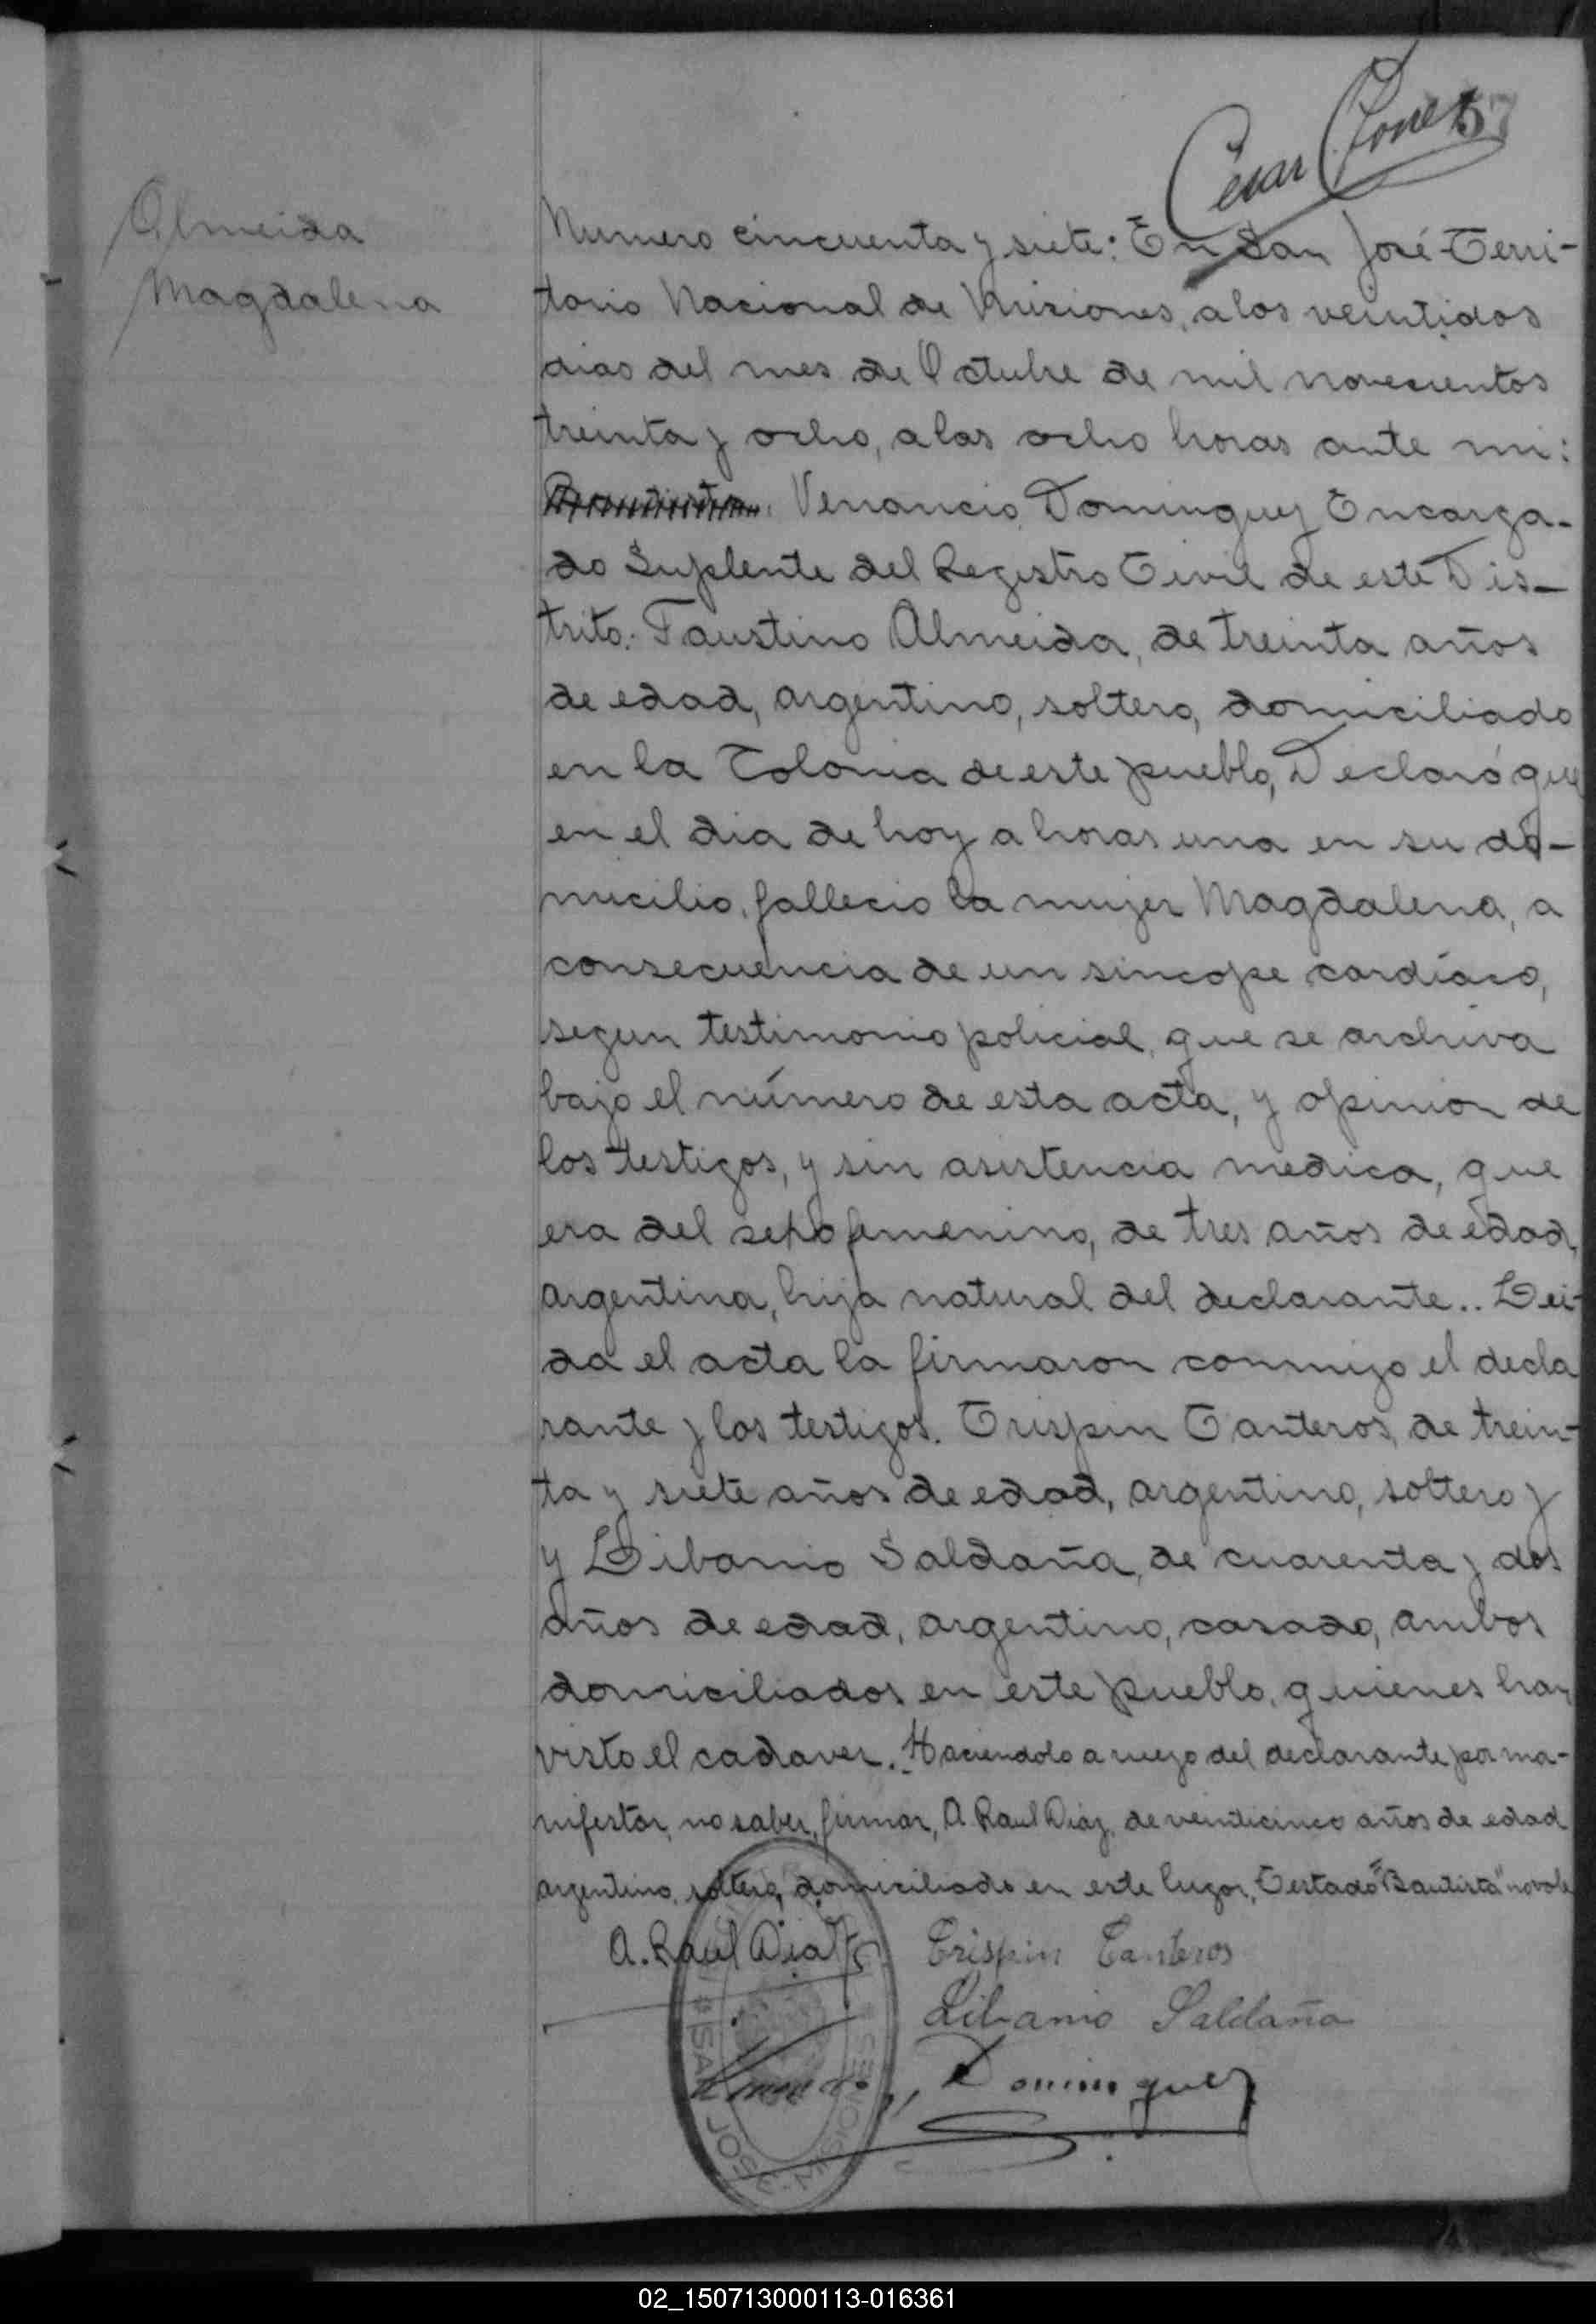 57
César
Almeida
Magdalena
Numero cincuenta y siete: En San José Terri-
torio Nacional de Misiones, a los veintidos
dias del mes de Octubre de mil novecientos
treinta y ocho, a las ocho horas ante mi:
Venancio Dominguez Encarga-
do Suplente del Registro Civil de este Dis-
trito: Faustino Almeida, de treinta años
de edad, argentino, soltero, domiciliado
en la Colonia de este pueblo, Declaró que
en el dia de hoy a horas una en su do-
micilio, fallecio la mujer Magdalena, a
consecuencia de un sincope cardíaco,
segun testimonio policial, que se archiva
bajo el número de esta acta, y opinion de
los testigos, y sin asistencia medica, que
era del sexo femenino, de tres años de edad,
argentina, hija natural del declarante.. Lei-
da el acta la firmaron conmigo el decla
rante y los testigos. Crispin Canteros, de trein-
ta y siete años de edad, argentino, soltero y
y Libanio Saldaña, de cuarenta y dos
años de edad, argentino, casado, ambos
domiciliados en este pueblo, quienes han
visto el cadaver. Haciendolo a ruego del declarante por ma-
nifestar, no saber firmar, A. Raul Diaz, de veinticinco años de edad
argentino, soltero, domiciliado en este lugar, Testado "Bautista" no vale
A. Raul Diaz Crispin Canteros
Libanio Saldaña
Dominguez
* SAN JOSE * MISIONES
02_150713000113-016361